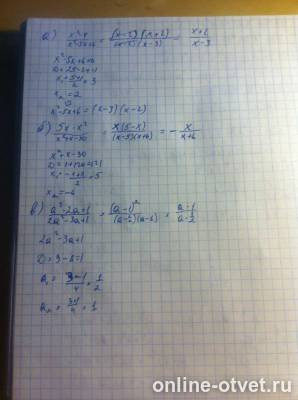 а) x²-4 / x²-5x+6 = (x-2)(x+2) / (x-2)(x-3) = x+2 / x-3
x²-5x+6=0
D=25-24=1
x₁=5+1/2=3
x₂=2
x²-5x+6=(x-3)(x-2)
б) 5x-x² / x²+x-30 = x(5-x) / (x-5)(x+6) = - x / x+6
x²+x-30
D=1+120=121
x₁=-1+11/2=5
x₂=-6
в) a²-2a+1 / 2a²-3a+1 = (a-1)² / (a-½)(a-1) = a-1 / a-½
2a²-3a+1
D=9-8=1
a₁=3-1/4=1/2
a₂=3+1/4=1
online-otvet.ru